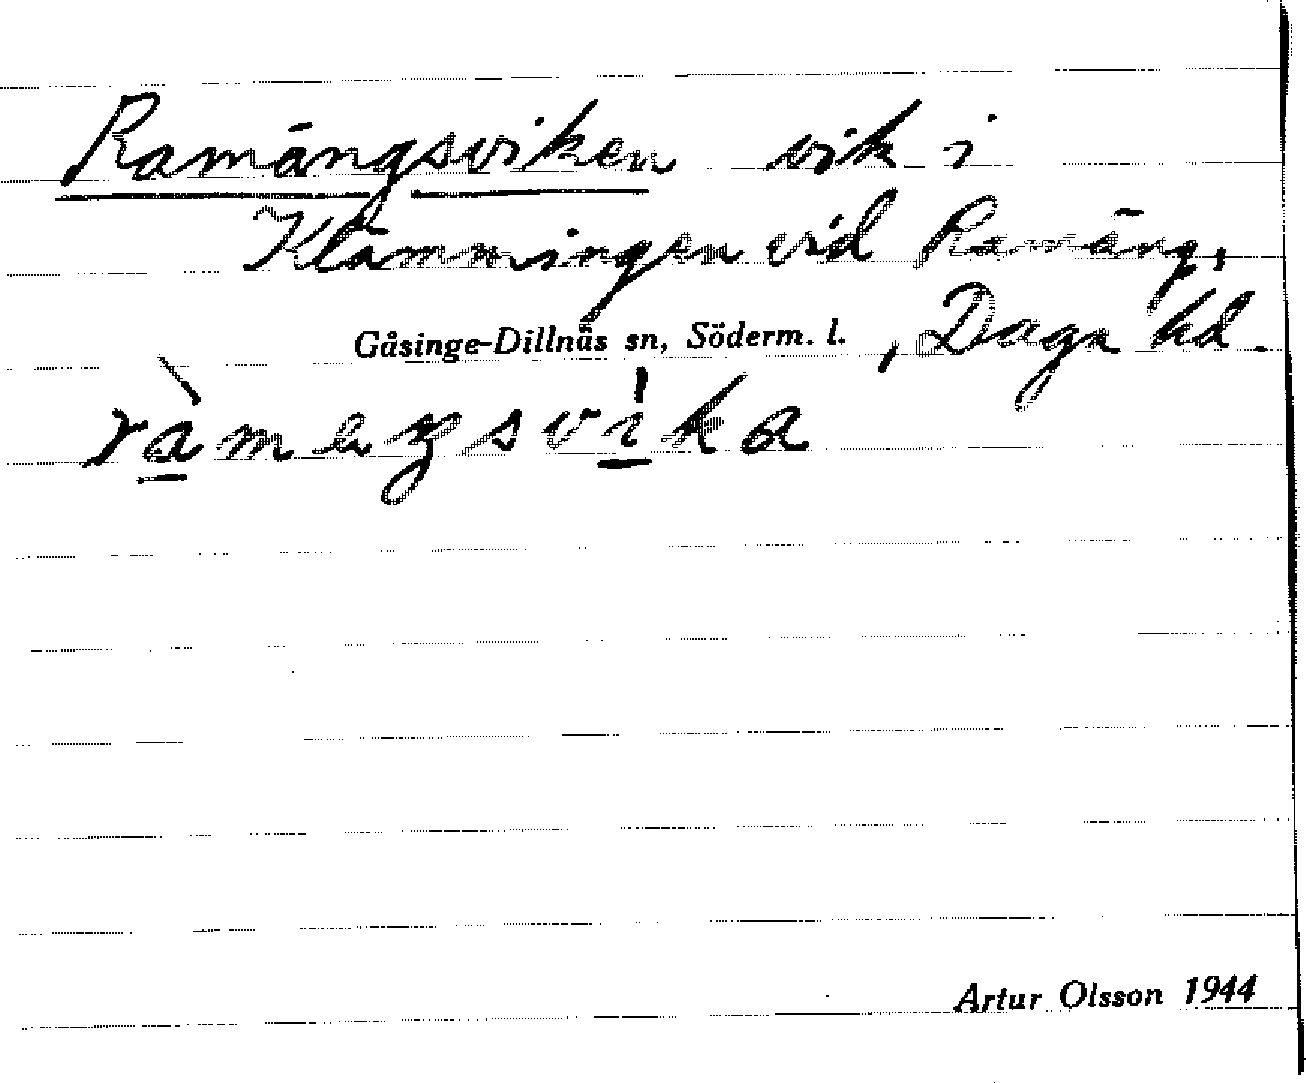 Ramängsviken vik i
Klämmingen vid Ramäng,
Gåsinge-Dillnäs sn, Söderm. l. , Daga hd.
Artur Olsson 1944